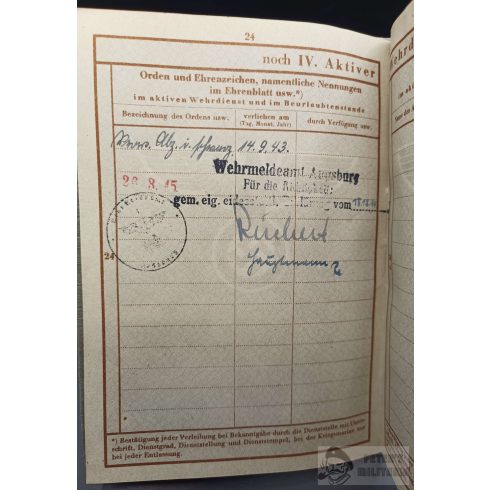 24
noch IV. Aktiver
Orden und Ehrenzeichen, namentliche Nennungen
im Ehrenblatt usw.*)
im aktiven Wehrdienst und im Beurlaubtenstande
Bezeichnung des Ordens usw.
verliehen am
(Tag, Monat, Jahr)
durch Verfügung usw.
Verw. Abz. i. schwarz 14.9.43.
Wehrmeldeamt Augsburg
Für die Richtigkeit:
gem. eig. eidesstattl. Erklärung vom
Hauptmann
24
*) Bestätigung jeder Verleihung bei Bekanntgabe durch die Dienststelle mit Unter-
schrift, Dienstgrad, Dienststellung und Dienststempel, bei der Kriegsmarine nur
bei jeder Entlassung.
PETER'S
MILITARIA